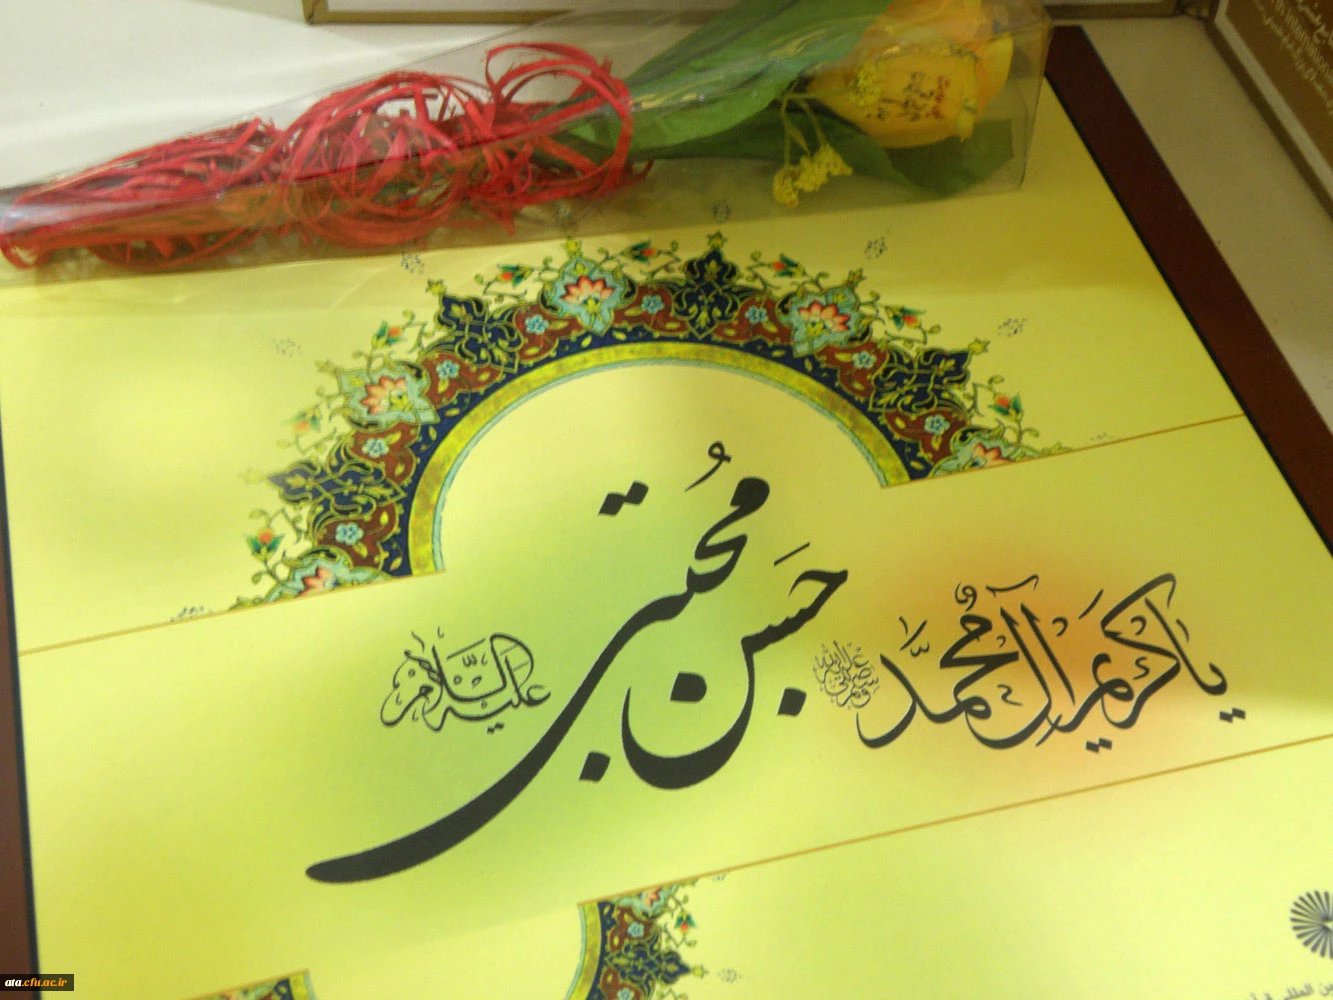 یا کریم آل محمد صلی الله علیه و آله و سلم
حسن مجتبی
علیه السلام
ata.cfu.ac.ir